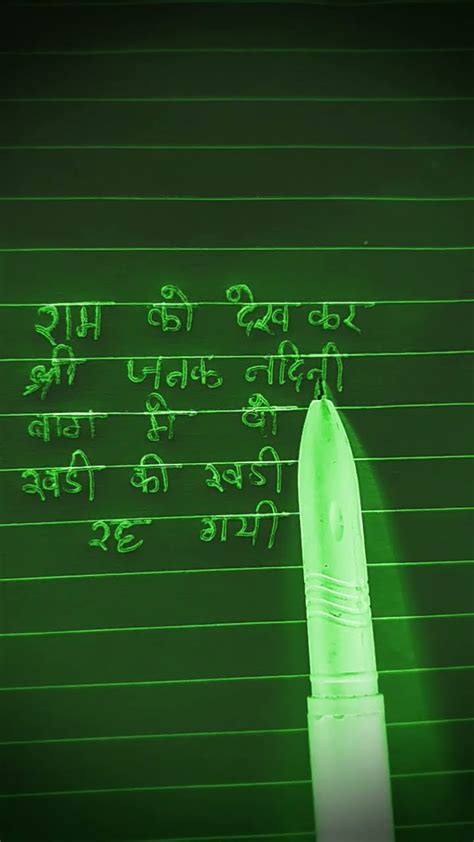 राम को देख कर
श्री जनक नदिनी
बाग मे वो
खडी की खडी
रह गयी